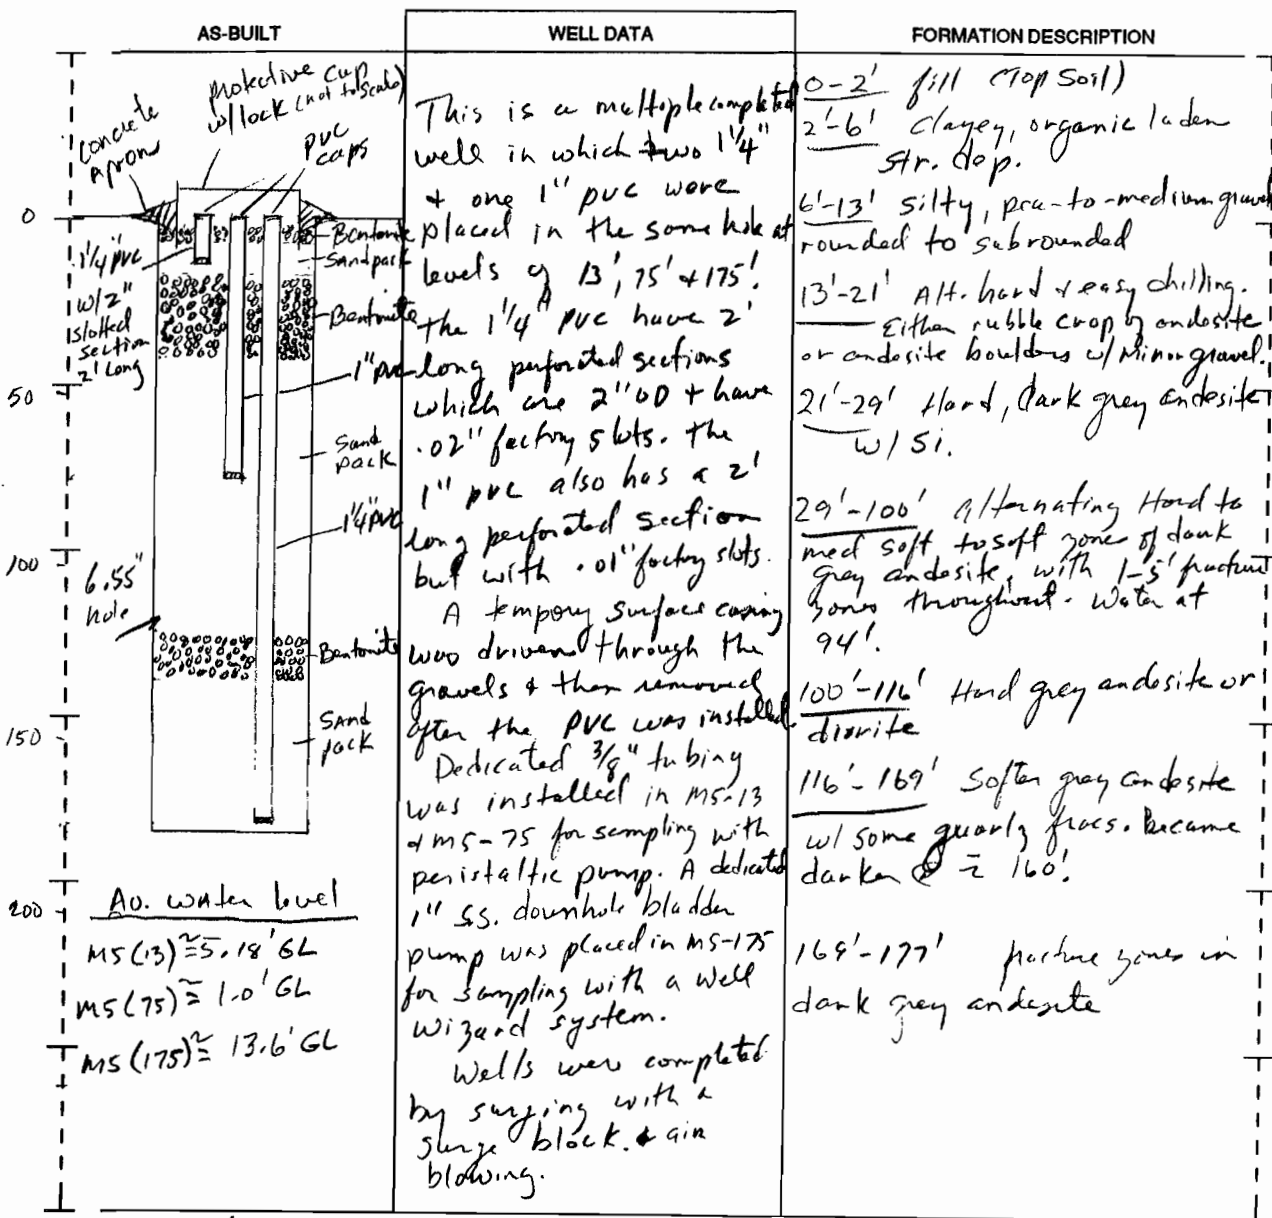 AS-BUILT
protective cup
w/lock (not to scale)
concrete
apron
PVC
caps
0
Bentonite
Sandpack
1 1/4" PVC
w/ 2"
slotted
section
2' Long
Bentonite
1" PVC
50
Sand
pack
1 1/4" PVC
100
6.55"
hole
Bentonite
150
SAND
pack
200
Av. water level
M5 (13) ≅ 5.18' GL
M5 (75) ≅ 1.0' GL
M5 (175) ≅ 13.6' GL
WELL DATA
This is a multiple completed
well in which two 1 1/4"
+ one 1" pvc were
placed in the same hole at
levels of 13', 75' + 175'.
the 1 1/4" PVC have 2'
long perforated sections
which are 2" OD + have
.02" factory slots. the
1" pvc also has a 2'
long perforated section
but with .01" factory slots.
A tempory surface casing
was driven through the
gravels + then removed
after the PVC was installed.
Dedicated 3/8" tubing
was installed in M5-13
+ M5-75 for sampling with
peristaltic pump. A dedicated
1" S.S. downhole bladder
pump was placed in M5-175
for sampling with a well
wizard system.
Wells were completed
by surging with a
surge block. + air
blowing.
FORMATION DESCRIPTION
0-2' fill (Top Soil)
2'-6' Clayey, organic laden
str. dep.
6'-13' silty, pea-to-medium gravel
rounded to subrounded
13'-21' Alt. hard + easy drilling.
Either rubble crop of andesite
or andesite boulders w/ Minor gravel.
21'-29' Hard, dark grey andesite
w/ Si.
29'-100' alternating Hard to
med soft to soft zone of dark
grey andesite, with 1-5' fracture
zones throughout. Water at
94'.
100'-116' Hard grey andesite or
diorite
116'-169' Softer grey andesite
w/ some quartz fracs. Became
darker @ ~ 160'.
169'-177' fracture zones in
dark grey andesite